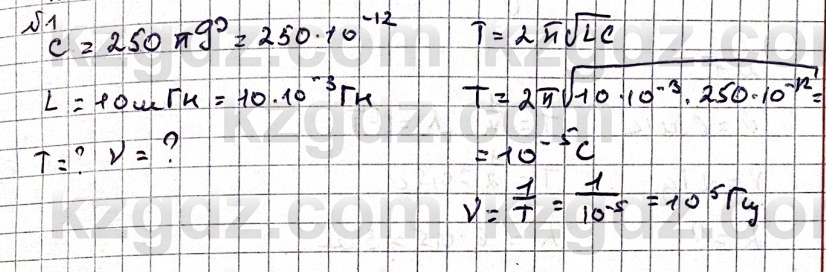 №1
C = 250 пФ = 250·10⁻¹²
L = 10 мГн = 10·10⁻³ Гн
T = ? ν = ?
T = 2π√LC
T = 2π√10·10⁻³·250·10⁻¹² =
= 10⁻⁵ с
ν = 1/T = 1/10⁻⁵ = 10⁵ Гц
kzgdz.com kzgdz.com
kzgdz.com
kzgdz.com kzgdz.com